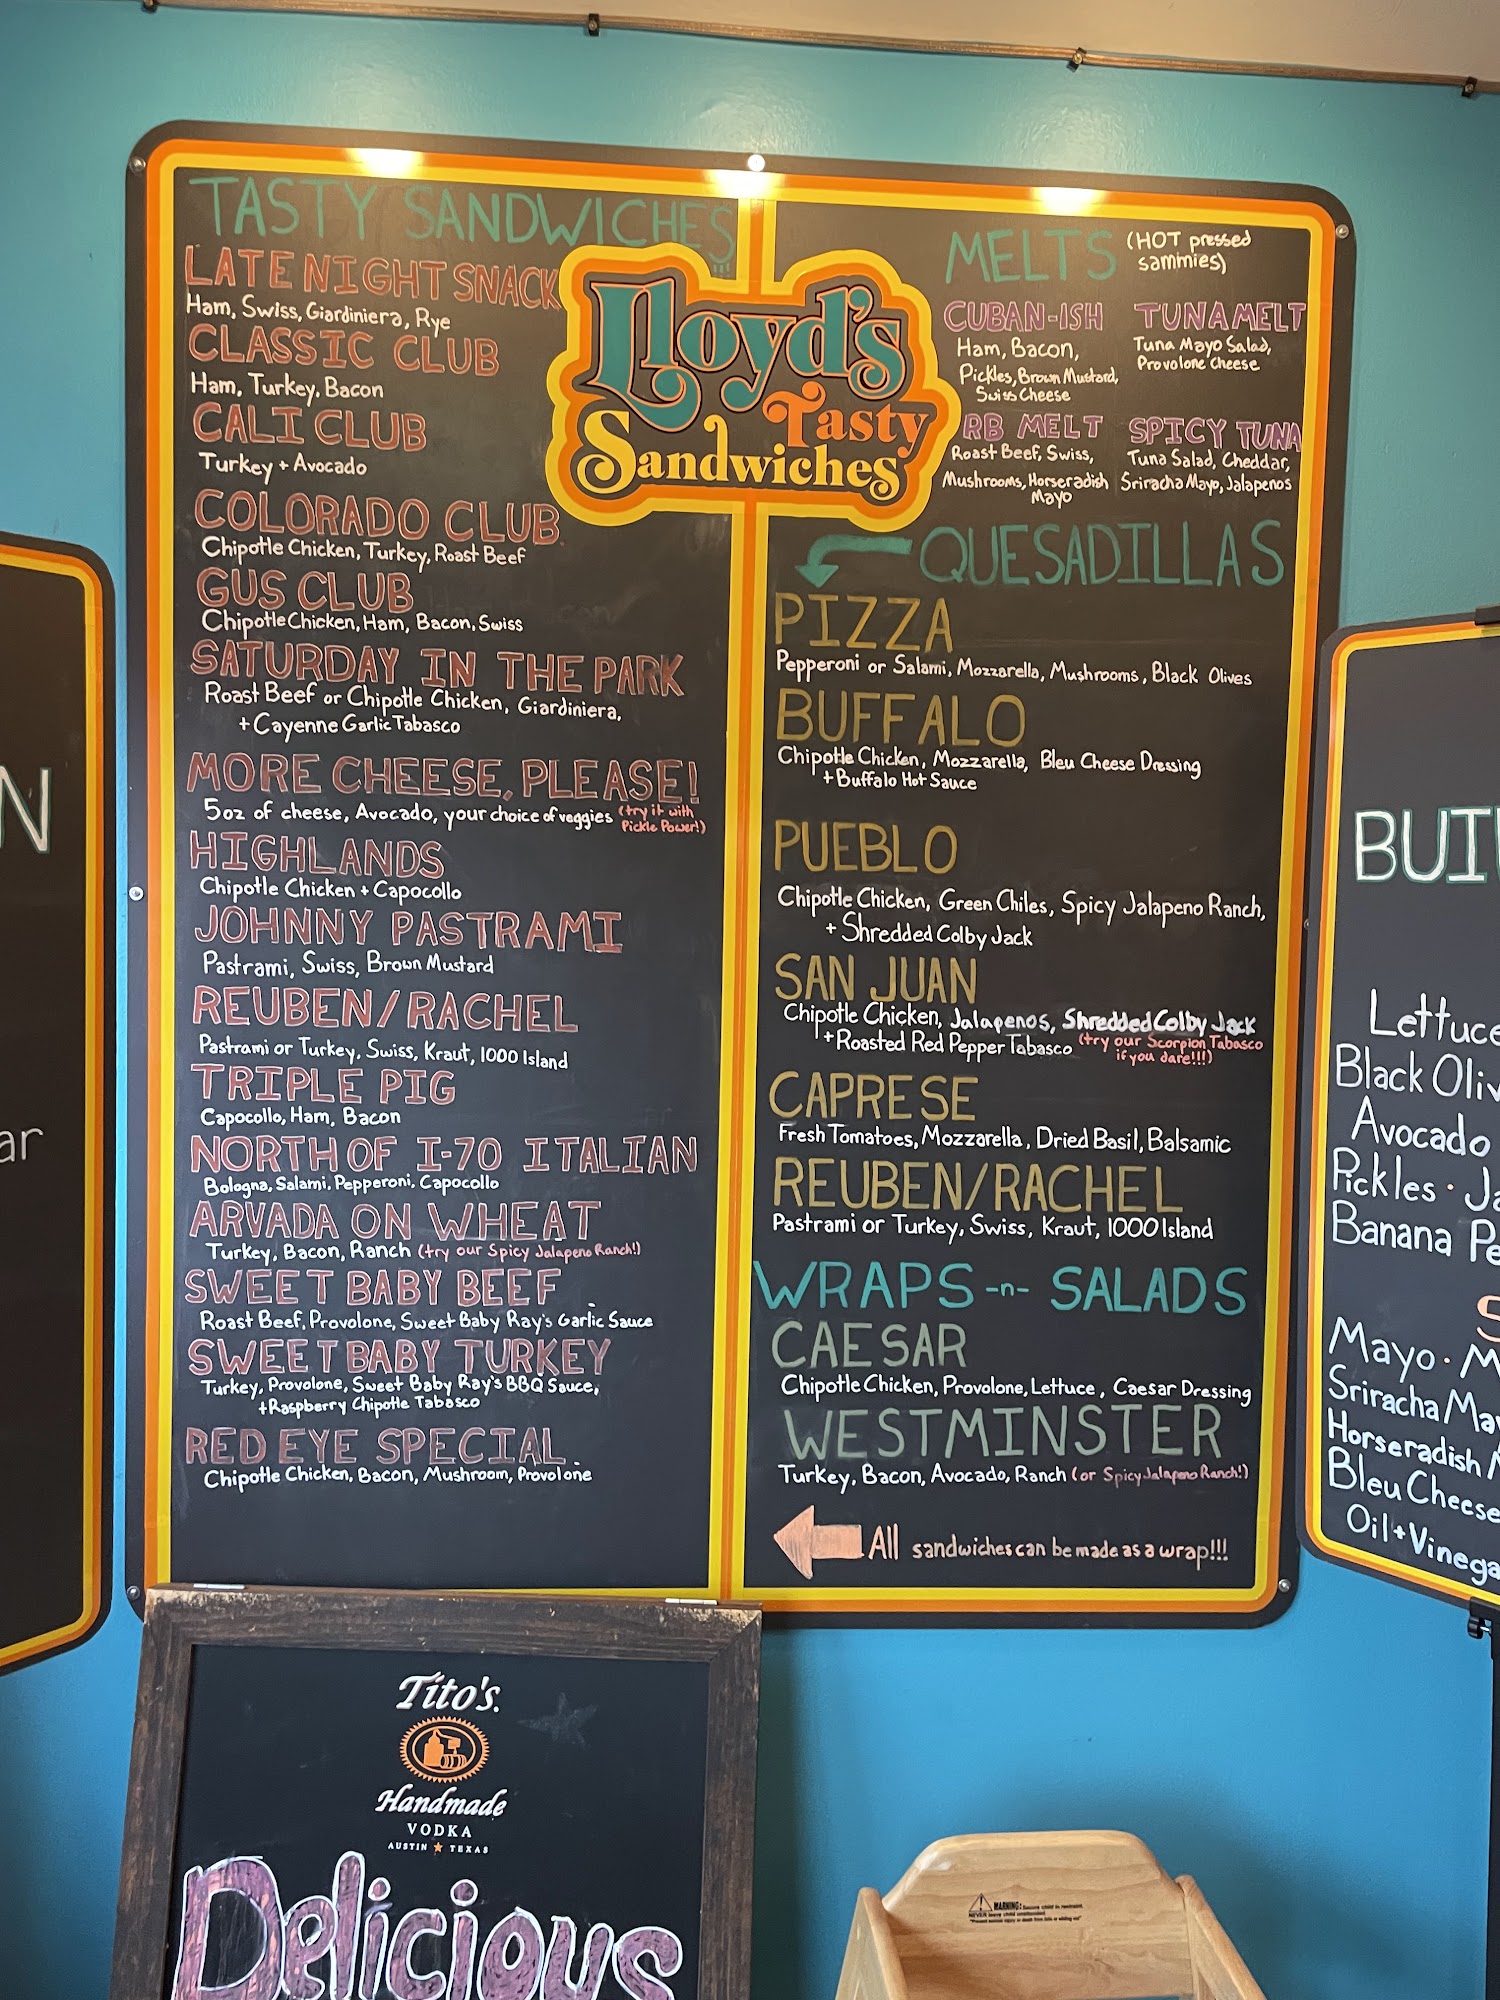 TASTY SANDWICHES!!!
LATE NIGHT SNACK
Ham, Swiss, Giardiniera, Rye
CLASSIC CLUB
Ham, Turkey, Bacon
CALI CLUB
Turkey + Avocado
COLORADO CLUB
Chipotle Chicken, Turkey, Roast Beef
GUS CLUB
Chipotle Chicken, Ham, Bacon, Swiss
SATURDAY IN THE PARK
Roast Beef or Chipotle Chicken, Giardiniera,
+ Cayenne Garlic Tabasco
MORE CHEESE, PLEASE!
5oz of cheese, Avocado, your choice of veggies (try it with
Pickle Power!)
HIGHLANDS
Chipotle Chicken + Capocollo
JOHNNY PASTRAMI
Pastrami, Swiss, Brown Mustard
REUBEN/RACHEL
Pastrami or Turkey, Swiss, Kraut, 1000 Island
TRIPLE PIG
Capocollo, Ham, Bacon
NORTH OF I-70 ITALIAN
Bologna, Salami, Pepperoni, Capocollo
ARVADA ON WHEAT
Turkey, Bacon, Ranch (try our Spicy Jalapeno Ranch!)
SWEET BABY BEEF
Roast Beef, Provolone, Sweet Baby Ray's Garlic Sauce
SWEET BABY TURKEY
Turkey, Provolone, Sweet Baby Ray's BBQ Sauce,
+Raspberry Chipotle Tabasco
RED EYE SPECIAL
Chipotle Chicken, Bacon, Mushroom, Provolone
Lloyd's
Tasty
Sandwiches
MELTS (HOT pressed
sammies)
CUBAN-ISH
Ham, Bacon,
Pickles, Brown Mustard,
Swiss Cheese
TUNA MELT
Tuna Mayo Salad,
Provolone Cheese
RB MELT
Roast Beef, Swiss,
Mushrooms, Horseradish
Mayo
SPICY TUNA
Tuna Salad, Cheddar,
Sriracha Mayo, Jalapenos
QUESADILLAS
PIZZA
Pepperoni or Salami, Mozzarella, Mushrooms, Black Olives
BUFFALO
Chipotle Chicken, Mozzarella, Bleu Cheese Dressing
+ Buffalo Hot Sauce
PUEBLO
Chipotle Chicken, Green Chiles, Spicy Jalapeno Ranch,
+ Shredded Colby Jack
SAN JUAN
Chipotle Chicken, Jalapenos, Shredded Colby Jack
+Roasted Red Pepper Tabasco (try our Scorpion Tabasco
if you dare!!!)
CAPRESE
Fresh Tomatoes, Mozzarella, Dried Basil, Balsamic
REUBEN/RACHEL
Pastrami or Turkey, Swiss, Kraut, 1000 Island
WRAPS -n- SALADS
CAESAR
Chipotle Chicken, Provolone, Lettuce, Caesar Dressing
WESTMINSTER
Turkey, Bacon, Avocado, Ranch (or Spicy Jalapeno Ranch!)
All sandwiches can be made as a wrap!!!
N
ar
BUI
Lettuce
Black Oliv
Avocado
Pickles · Ja
Banana Pe
S
Mayo · M
Sriracha May
Horseradish M
Bleu Cheese
Oil + Vinega
Tito's
Handmade
VODKA
AUSTIN TEXAS
Delicious
WARNING: